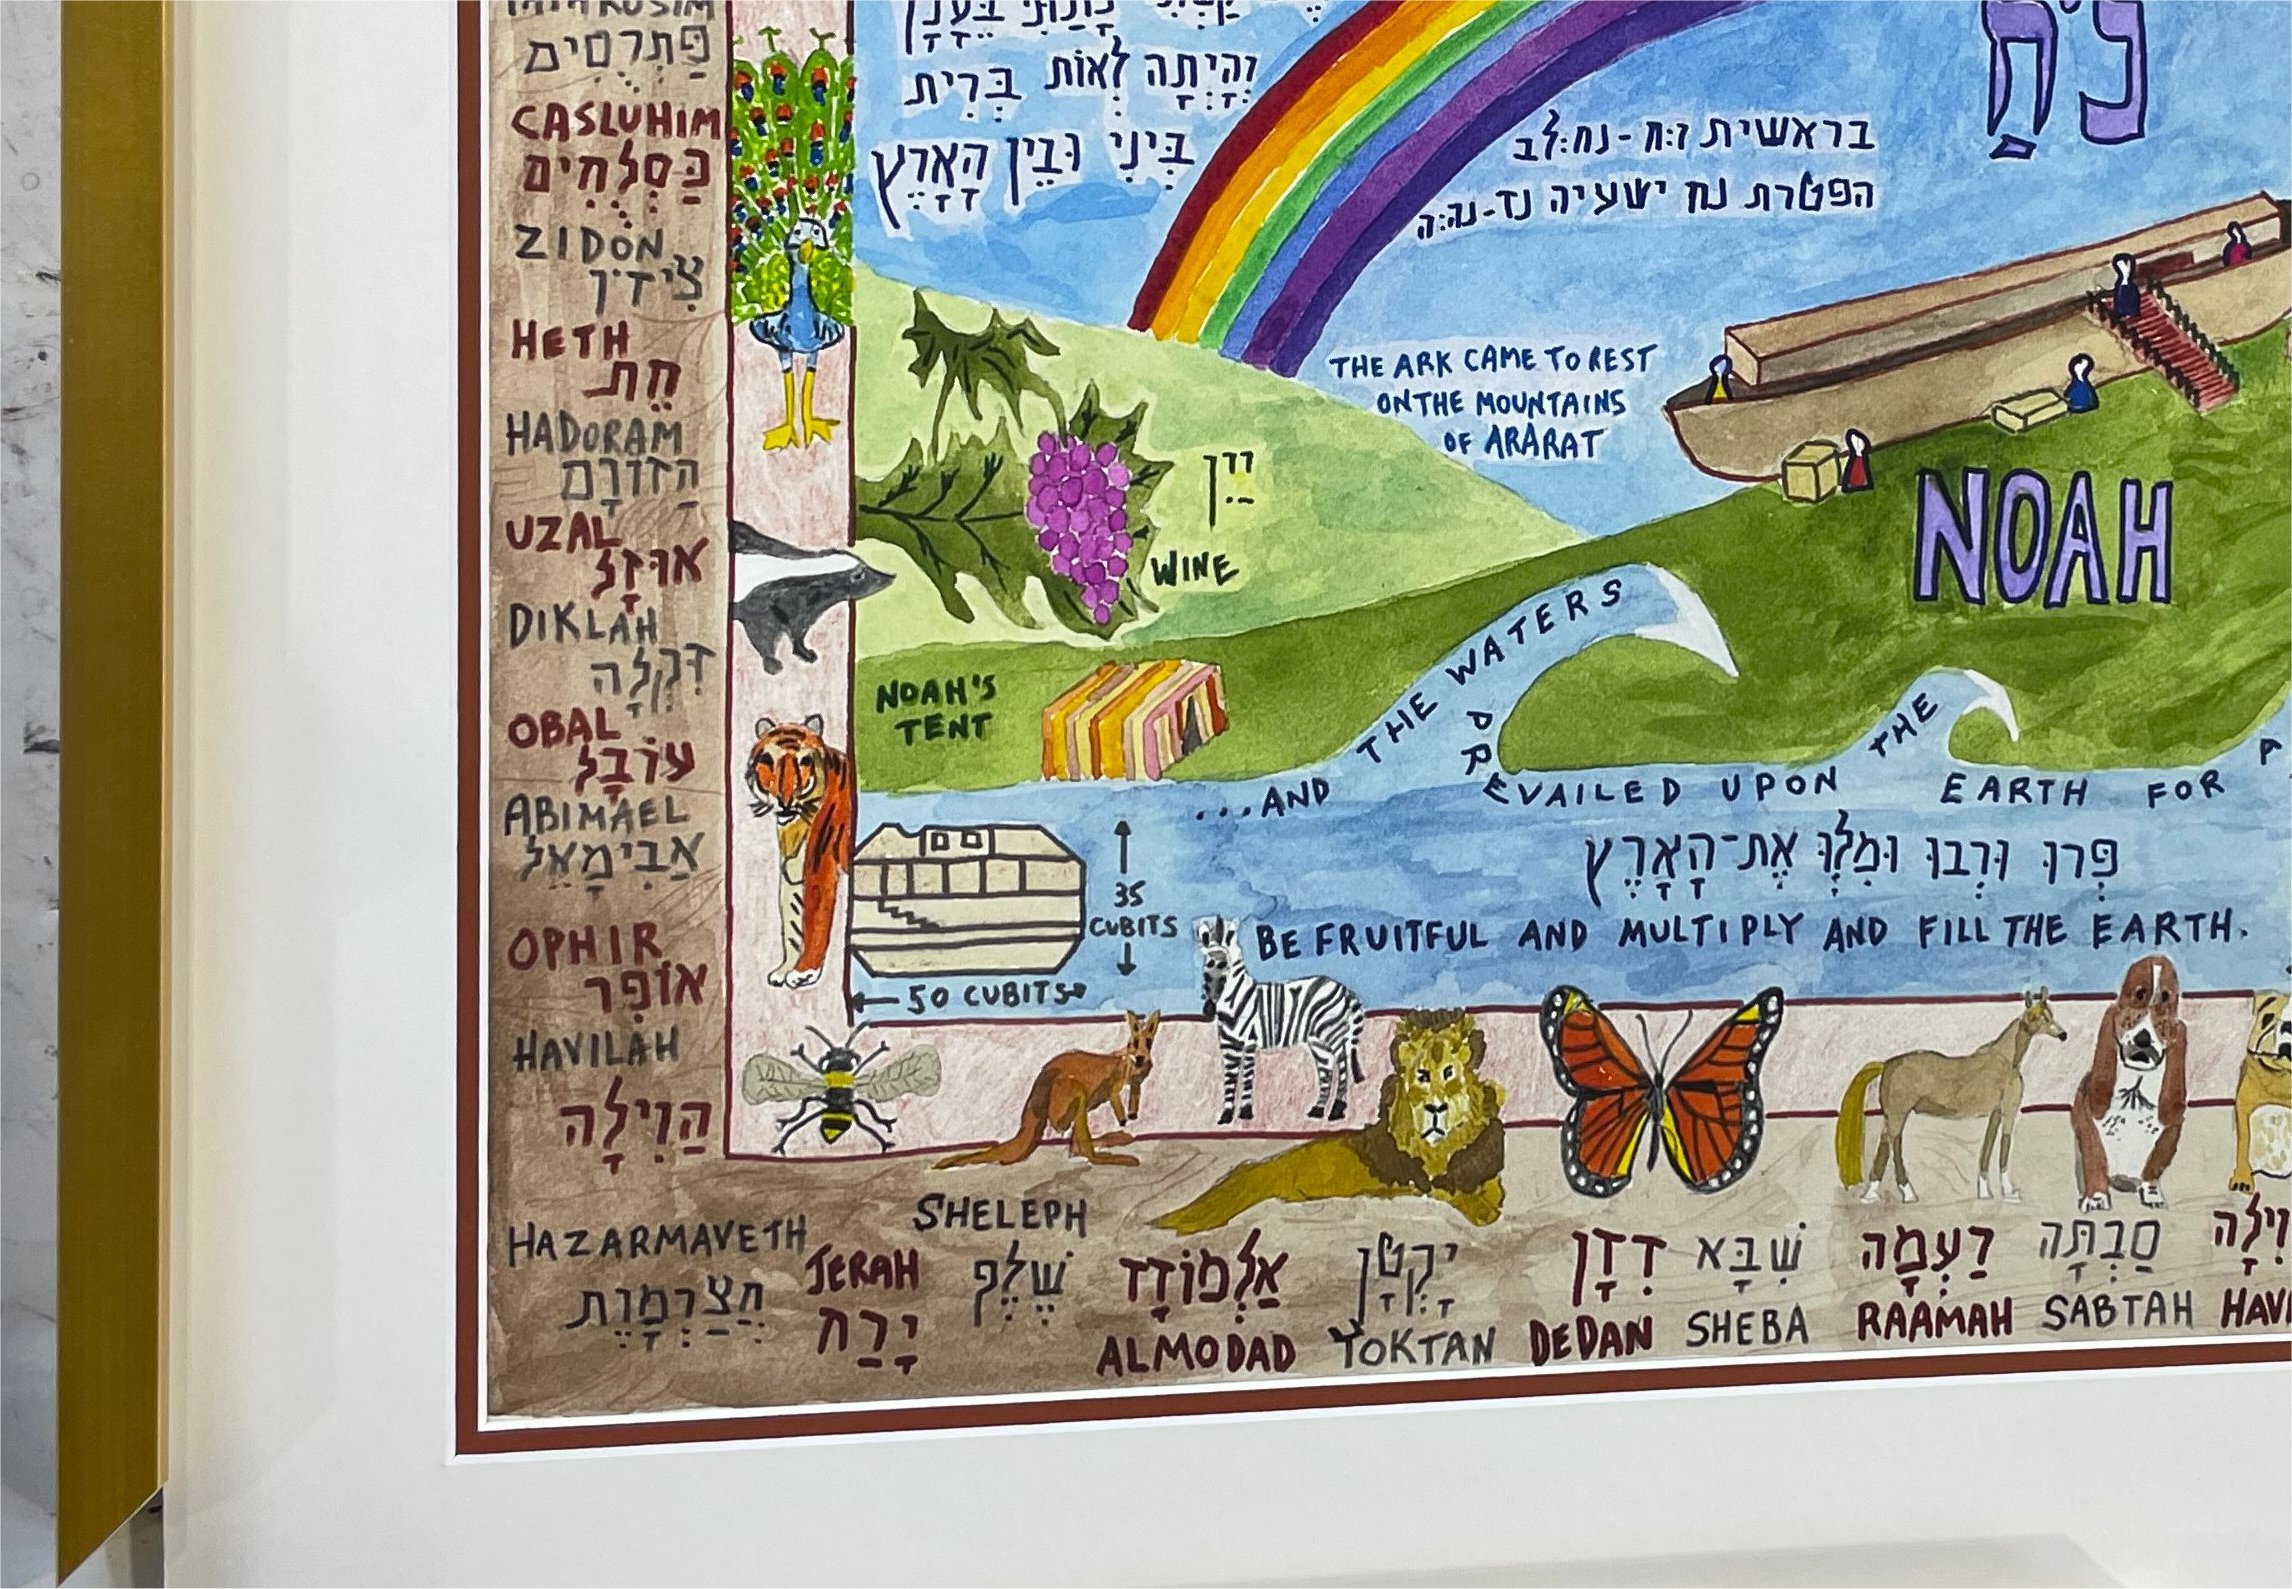 פַּתְרֻסִים
CASLUHIM
כַּסְלֻחִים
ZIDON
צִידֹן
HETH
חֵת
HADORAM
הֲדוֹרָם
UZAL
אוּזָל
DIKLAH
דִּקְלָה
OBAL
עוֹבָל
ABIMAEL
אֲבִימָאֵל
OPHIR
אוֹפִר
HAVILAH
חֲוִילָה
HAZARMAVETH
חֲצַרְמָוֶת
JERAH
יָרַח
SHELEPH
שֶׁלֶף
אַלְמוֹדָד
ALMODAD
יָקְטָן
YOKTAN
דְדָן
DEDAN
שְׁבָא
SHEBA
רַעְמָה
RAAMAH
סַבְתָּה
SABTAH
וִילָה
HAV
נָתַתִּי בֶּעָנָן
וְהָיְתָה לְאוֹת בְּרִית
בֵּינִי וּבֵין הָאָרֶץ
נֹחַ
בראשית ו:ח - נח:לב
הפטרת נח ישעיה נד-נה:ה
THE ARK CAME TO REST
ON THE MOUNTAINS
OF ARARAT
NOAH
יַיִן
WINE
NOAH'S
TENT
...AND THE WATERS PREVAILED UPON THE EARTH FOR
פְּרוּ וּרְבוּ וּמִלְאוּ אֶת־הָאָרֶץ
BE FRUITFUL AND MULTIPLY AND FILL THE EARTH.
35
CUBITS
50 CUBITS